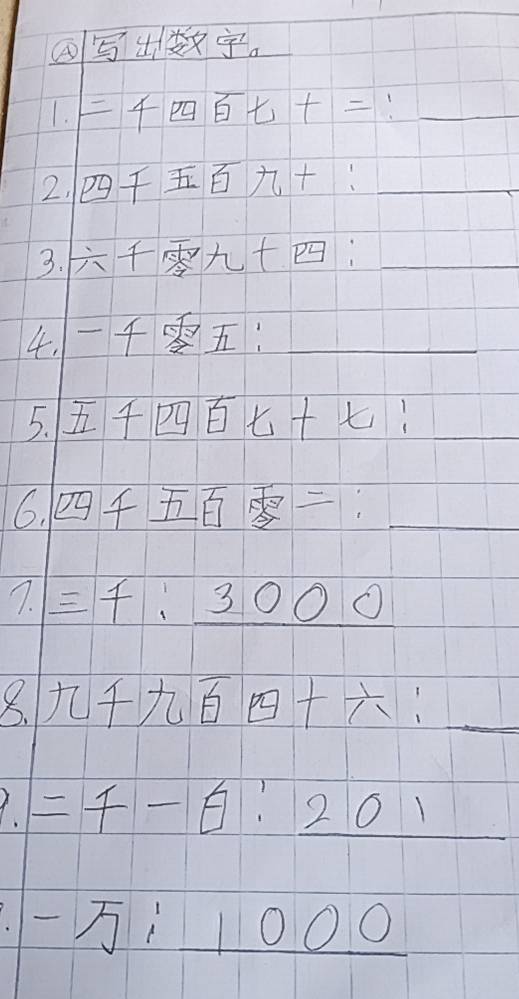 Ⓐ写出数字。
1. 二千四百七十二: ______
2. 四千五百九十: ______
3. 六千零九十四: ______
4. 一千零五: ______
5. 五千四百七十七: ______
6. 四千五百零二: ______
7. 三千: 3000
8. 九千九百四十六: ______
9. 二千一百: 201
一万: 1000